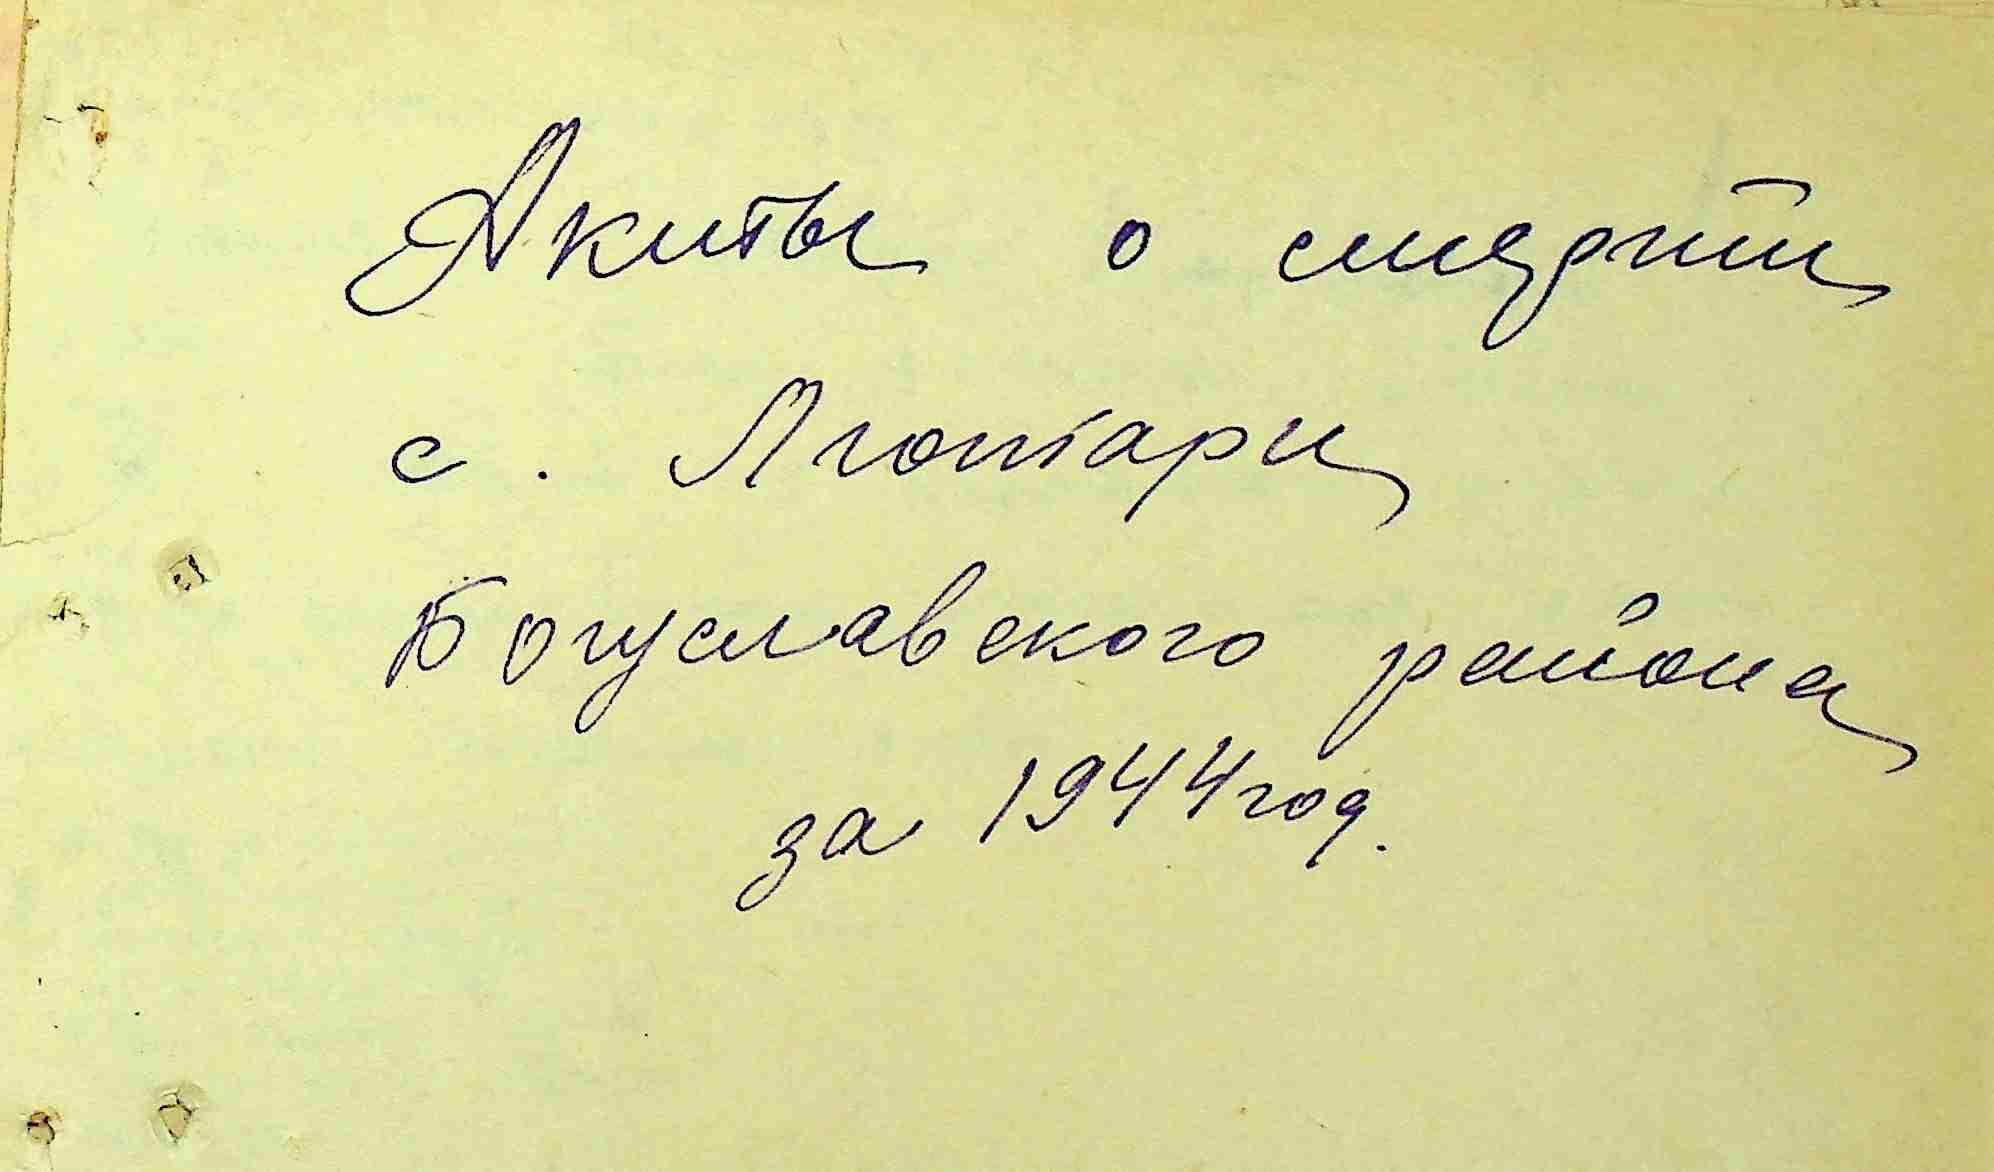 Акты о смерти
с. Лютари
Богуславского района
за 1944 год.